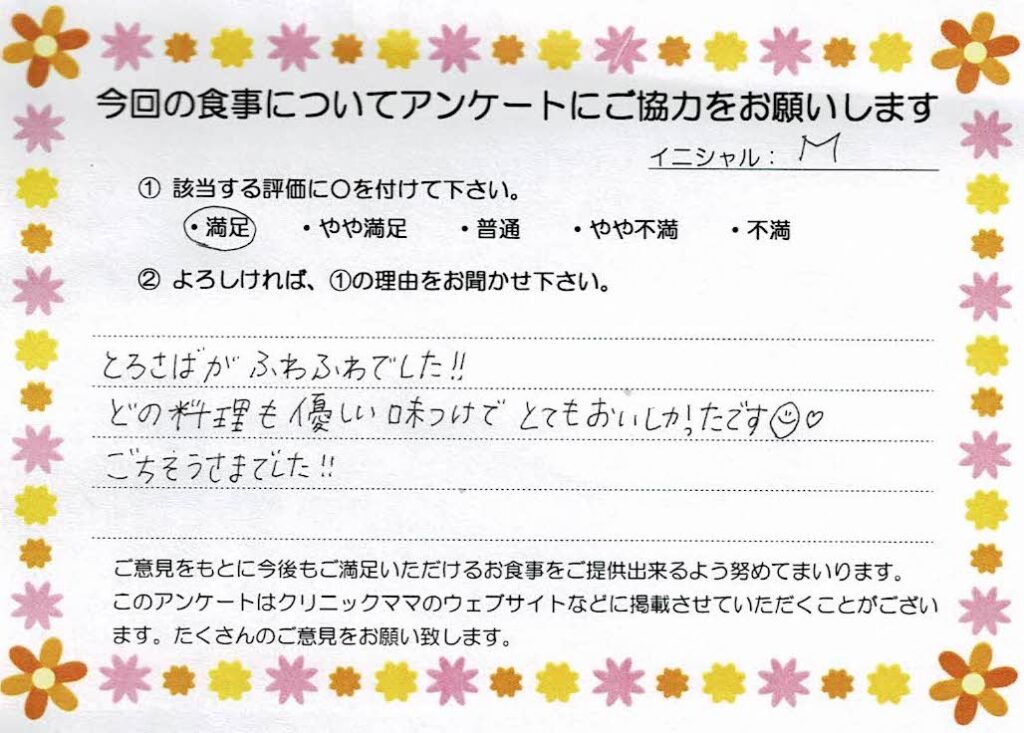 今回の食事についてアンケートにご協力をお願いします
イニシャル： M
① 該当する評価に〇を付けて下さい。
・満足 ・やや満足 ・普通 ・やや不満 ・不満
② よろしければ、①の理由をお聞かせ下さい。
とろさばが ふわふわでした!!
どの料理も優しい味つけで とてもおいしかったです☺♡
ごちそうさまでした!!
ご意見をもとに今後もご満足いただけるお食事をご提供出来るよう努めてまいります。
このアンケートはクリニックママのウェブサイトなどに掲載させていただくことがござい
ます。たくさんのご意見をお願い致します。